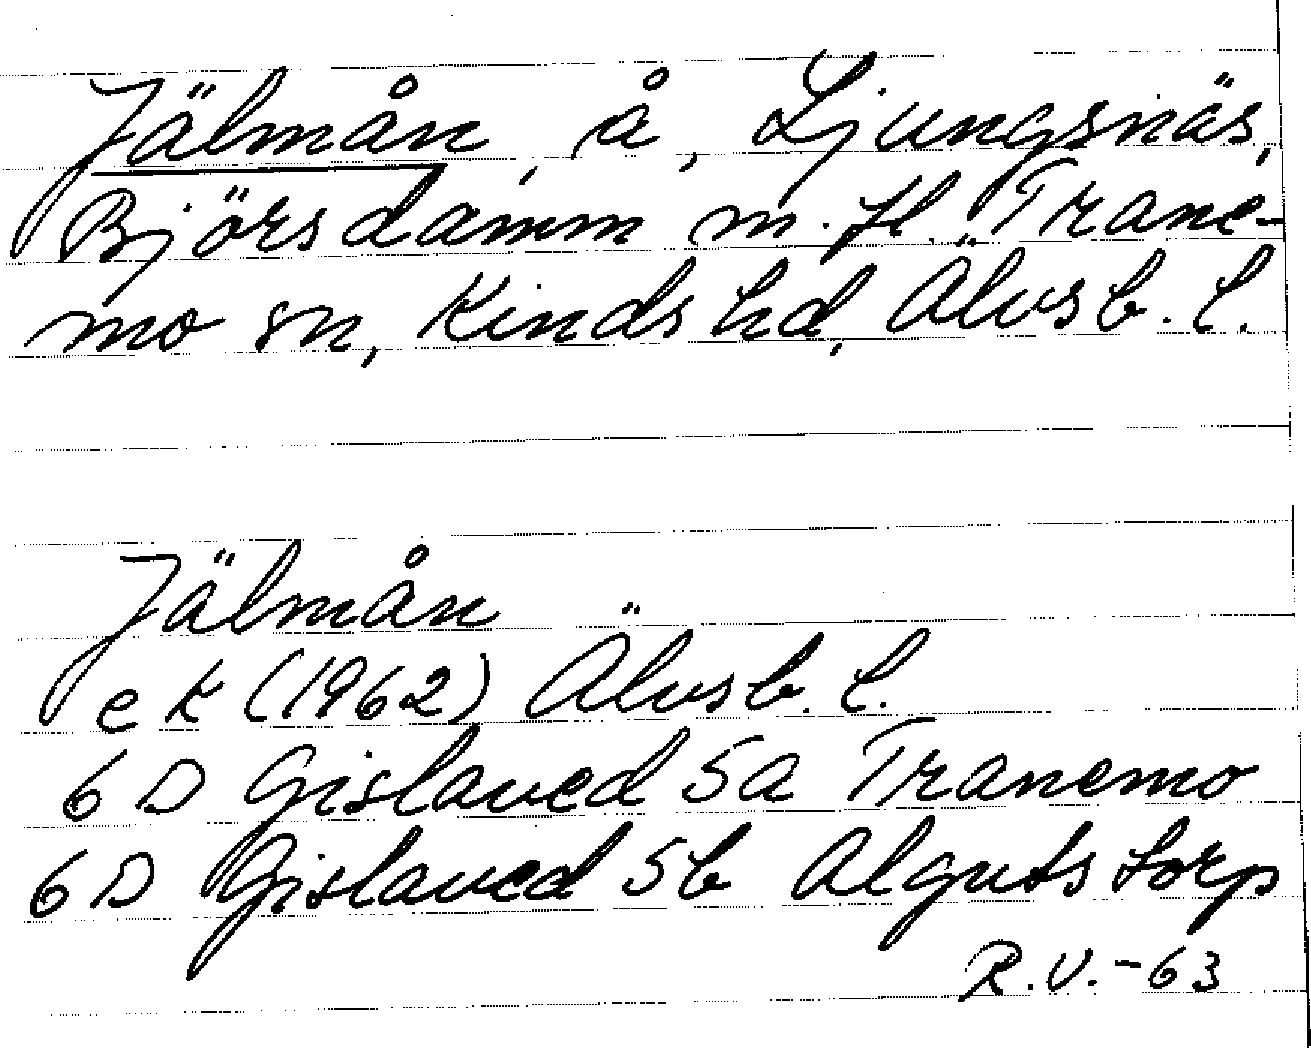 Jälmån, å, Ljungsnäs,
Björsdamm m.fl. Trane-
mo sn, Kinds hd, Älvsb. l.
Jälmån
ek (1962) Älvsb. l.
6 D Gislaved 5a Tranemo
6 D Gislaved 5b Algutstorp
R.V.-63